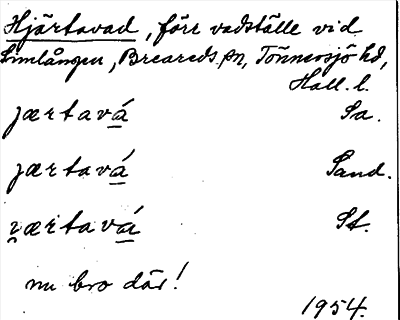 Hjärtavad, förr vadställe vid
Simlången, Breareds sn, Tönnersjö hd,
Hall. l.
jærtavá Sa.
jærtavá Sand.
ꭗærtavá St.
nu bro där!
1954.